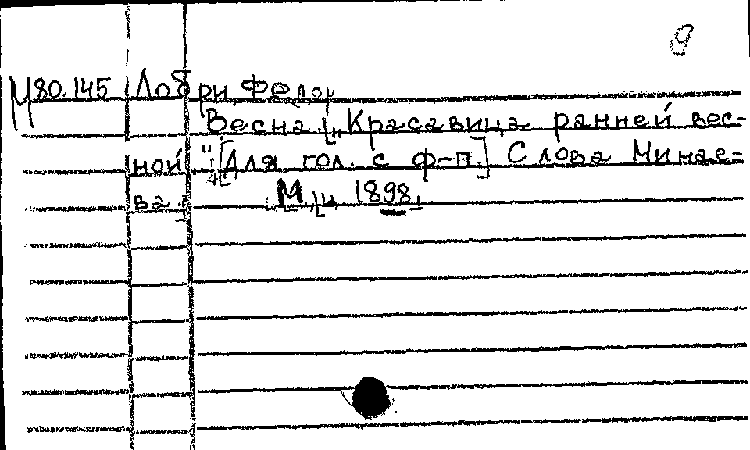 9
М80.145 Лобри Федор
Весна. „Красавица ранней вес-
ной": [Для гол. с ф-п.] Слова Минае-
ва. М., ц. 1898.